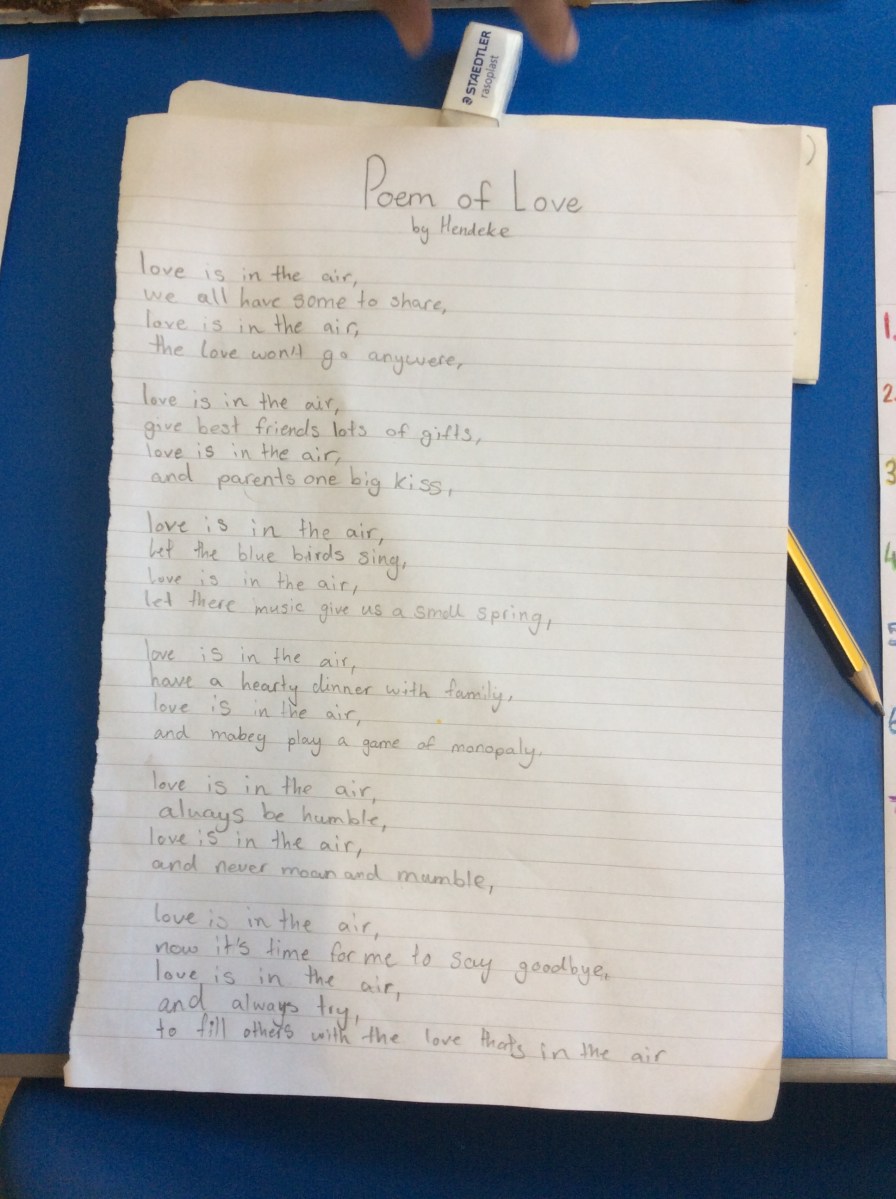 STAEDTLER
rasoplast
Poem of Love
by Hendeke
love is in the air,
we all have some to share,
love is in the air,
the love won't go anywere,
love is in the air,
give best friends lots of gifts,
love is in the air,
and parents one big kiss,
love is in the air,
let the blue birds sing,
love is in the air,
let there music give us a small spring,
love is in the air,
have a hearty dinner with family,
love is in the air,
and mabey play a game of monopaly.
love is in the air,
always be humble,
love is in the air,
and never moan and mumble,
love is in the air,
now it's time for me to say goodbye,
love is in the air,
and always try,
to fill others with the love that's in the air
1.
2.
3
4